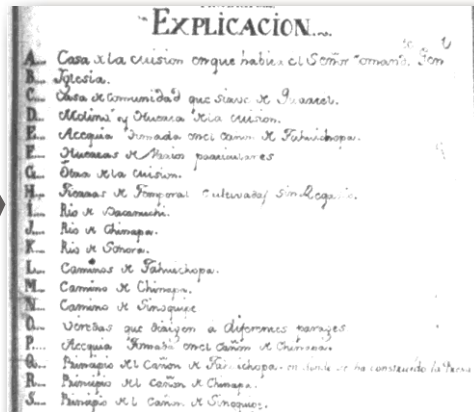 EXPLICACION
A... Casa de la Mision en que habita el Señor Comand. Gen
B... Iglesia.
C... Casa de Comunidad que sirve de Quartel.
D... Molino y Huerta de la Mision.
E... Acequia tomada en el Cañon de Tahuichopa.
F... Huertas de Varios particulares
G... Otra de la Mision.
H... Tierras de Temporal Cultivadas sin Regadio.
I... Rio de Bacanuchi.
J... Rio de Chinapa.
K... Rio de Sonora.
L... Caminos de Tahuichopa.
M... Camino de Chinapa.
N... Camino de Sinoquipe
O... Veredas que dirigen a diferentes parages
P... Acequia tomada en el Cañon de Chinapa.
Q... Principio del Cañon de Tahuichopa en donde se ha construido la Presa
R... Principio del Cañon de Chinapa.
S... Principio del Cañon de Sinoquipe.